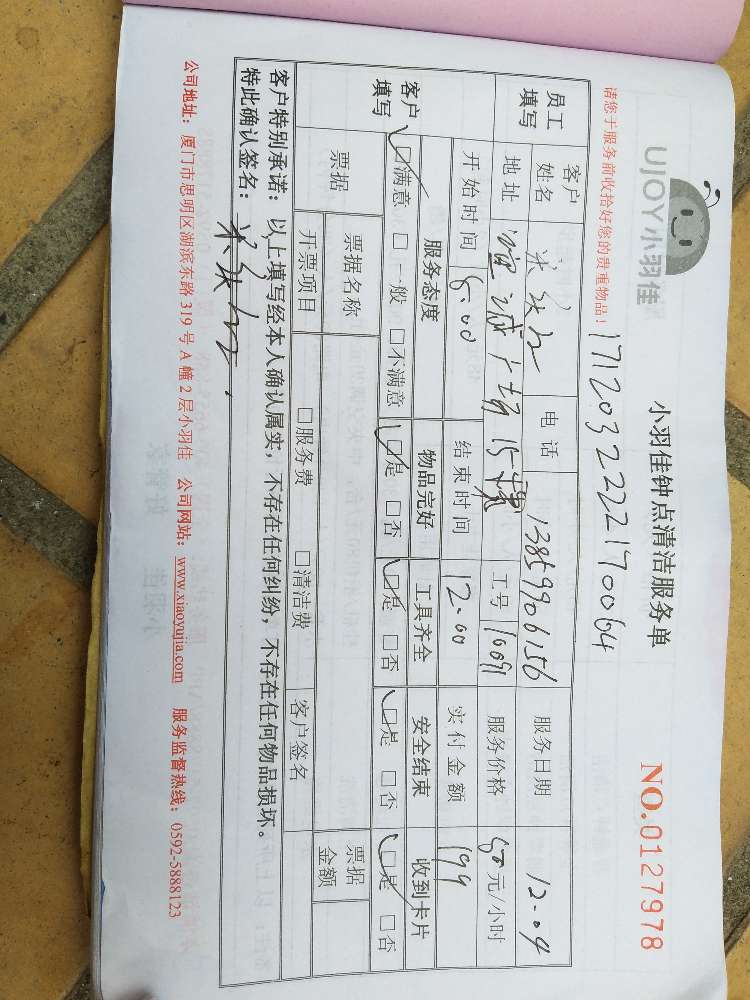 UJOY小羽佳
小羽佳钟点清洁服务单
NO.0127978
请您于服务前收拾好您的贵重物品!
171203222170064
员工填写 客户姓名 电话 13859906156 服务日期 12.04
地址 15楼 工号 10091 服务价格 50元/小时
开始时间 8.00 结束时间 12.00 实付金额 199
客户填写 服务态度 物品完好 工具齐全 安全结束 收到卡片
☑满意 □一般 □不满意 ☑是 □否 ☑是 □否 ☑是 □否 ☑是 □否
票据 票据名称 票据金额
开票项目 □服务费 □清洁费 客户签名
客户特别承诺：以上填写经本人确认属实，不存在任何纠纷，不存在任何物品损坏。
特此确认签名：
公司地址：厦门市思明区湖滨东路319号A幢2层小羽佳 公司网站：www.xiaoyujia.com 服务监督热线：0592-5888123